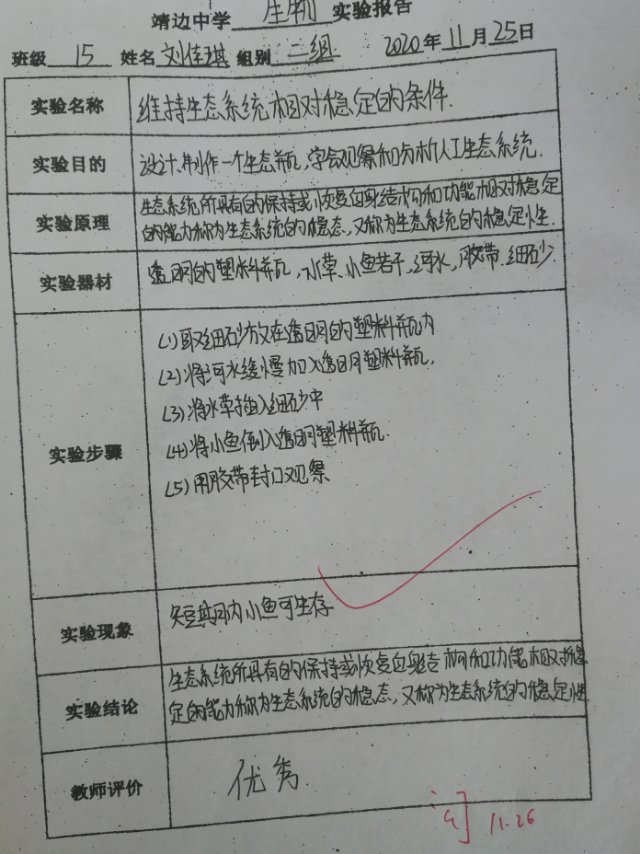 靖边中学 生物 实验报告
班级 15 姓名 刘佳琪 组别 二组 2020年11月25日
实验名称 维持生态系统相对稳定的条件.
实验目的 设计、制作一个生态瓶,学会观察和分析人工生态系统.
实验原理 生态系统所具有的保持或恢复自身结构和功能相对稳定
的能力称为生态系统的稳态,又称为生态系统的稳定性.
实验器材 透明的塑料瓶,水草、小鱼若干,河水,胶带、细砂.
实验步骤
(1)取细砂放在透明的塑料瓶内
(2)将河水缓慢加入透明塑料瓶.
(3)将水草插入细砂中
(4)将小鱼倒入透明塑料瓶.
(5)用胶带封口观察
实验现象 短期内小鱼可生存
实验结论 生态系统所具有的保持或恢复自身结构和功能相对稳
定的能力称为生态系统的稳态,又称为生态系统的稳定性
教师评价 优秀.
11.26